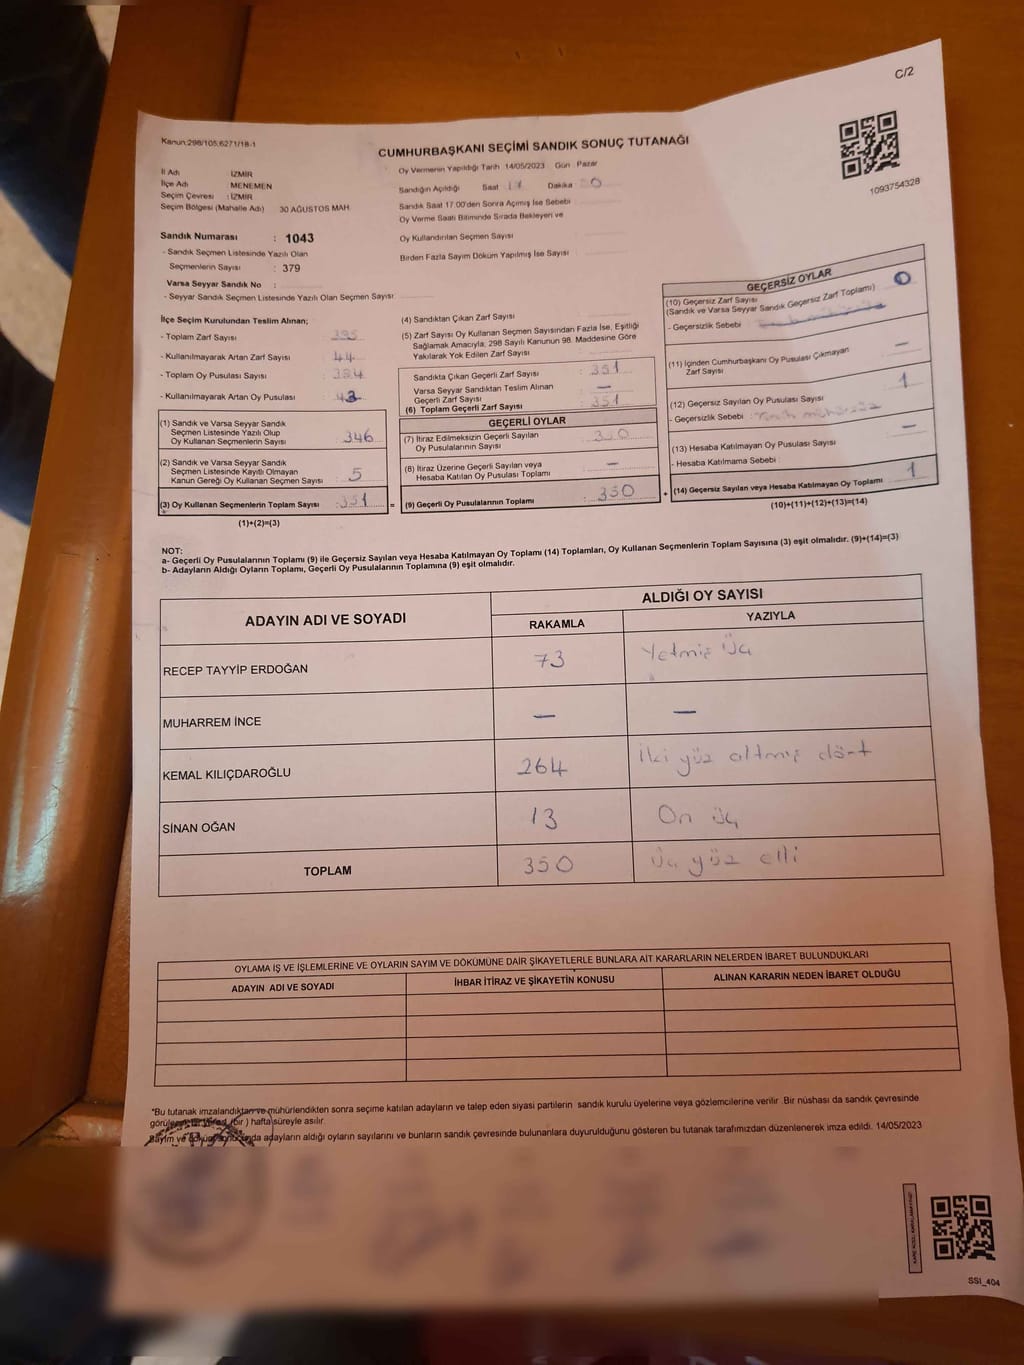 C/2
Kanun:298/105,6271/18-1
CUMHURBAŞKANI SEÇİMİ SANDIK SONUÇ TUTANAĞI
1093754328
İl Adı İZMİR
İlçe Adı MENEMEN
Seçim Çevresi : İZMİR
Seçim Bölgesi (Mahalle Adı) 30 AĞUSTOS MAH.
Oy Vermenin Yapıldığı Tarih 14/05/2023 Gün Pazar
Sandığın Açıldığı Saat 17 Dakika
Sandık Saat 17.00'den Sonra Açımış İse Sebebi
Oy Verme Saati Bitiminde Sırada Bekleyen ve
Oy Kullandırılan Seçmen Sayısı
Birden Fazla Sayım Döküm Yapılmış İse Sayısı
Sandık Numarası : 1043
- Sandık Seçmen Listesinde Yazılı Olan
Seçmenlerin Sayısı : 379
Varsa Seyyar Sandık No :
- Seyyar Sandık Seçmen Listesinde Yazılı Olan Seçmen Sayısı:
İlçe Seçim Kurulundan Teslim Alınan;
- Toplam Zarf Sayısı : 395
- Kullanılmayarak Artan Zarf Sayısı : 44
- Toplam Oy Pusulası Sayısı : 394
- Kullanılmayarak Artan Oy Pusulası : 43
(1) Sandık ve Varsa Seyyar Sandık
Seçmen Listesinde Yazılı Olup
Oy Kullanan Seçmenlerin Sayısı : 346
(2) Sandık ve Varsa Seyyar Sandık
Seçmen Listesinde Kayıtlı Olmayan
Kanun Gereği Oy Kullanan Seçmen Sayısı : 5
(3) Oy Kullanan Seçmenlerin Toplam Sayısı : 351
(1)+(2)=(3)
(4) Sandıktan Çıkan Zarf Sayısı
(5) Zarf Sayısı Oy Kullanan Seçmen Sayısından Fazla İse, Eşitliği
Sağlamak Amacıyla, 298 Sayılı Kanunun 98. Maddesine Göre
Yakılarak Yok Edilen Zarf Sayısı
Sandıkta Çıkan Geçerli Zarf Sayısı : 351
Varsa Seyyar Sandıktan Teslim Alınan
Geçerli Zarf Sayısı : —
(6) Toplam Geçerli Zarf Sayısı : 351
GEÇERLİ OYLAR
(7) İtiraz Edilmeksizin Geçerli Sayılan
Oy Pusulalarının Sayısı : 350
(8) İtiraz Üzerine Geçerli Sayılan veya
Hesaba Katılan Oy Pusulası Toplamı : —
= (9) Geçerli Oy Pusulalarının Toplamı : 350
GEÇERSİZ OYLAR
(10) Geçersiz Zarf Sayısı
(Sandık ve Varsa Seyyar Sandık Geçersiz Zarf Toplamı) 0
- Geçersizlik Sebebi
(11) İçinden Cumhurbaşkanı Oy Pusulası Çıkmayan
Zarf Sayısı —
(12) Geçersiz Sayılan Oy Pusulası Sayısı 1
- Geçersizlik Sebebi :
(13) Hesaba Katılmayan Oy Pusulası Sayısı —
- Hesaba Katılmama Sebebi :
+ (14) Geçersiz Sayılan veya Hesaba Katılmayan Oy Toplamı 1
(10)+(11)+(12)+(13)=(14)
NOT:
a- Geçerli Oy Pusulalarının Toplamı (9) ile Geçersiz Sayılan veya Hesaba Katılmayan Oy Toplamı (14) Toplamları, Oy Kullanan Seçmenlerin Toplam Sayısına (3) eşit olmalıdır. (9)+(14)=(3)
b- Adayların Aldığı Oyların Toplamı, Geçerli Oy Pusulalarının Toplamına (9) eşit olmalıdır.
ADAYIN ADI VE SOYADI ALDIĞI OY SAYISI
RAKAMLA YAZIYLA
RECEP TAYYİP ERDOĞAN 73 Yetmiş Üç
MUHARREM İNCE — —
KEMAL KILIÇDAROĞLU 264 İki yüz altmış dört
SİNAN OĞAN 13 On üç
TOPLAM 350 Üç yüz elli
OYLAMA İŞ VE İŞLEMLERİNE VE OYLARIN SAYIM VE DÖKÜMÜNE DAİR ŞİKAYETLERLE BUNLARA AİT KARARLARIN NELERDEN İBARET BULUNDUKLARI
ADAYIN ADI VE SOYADI İHBAR İTİRAZ VE ŞİKAYETİN KONUSU ALINAN KARARIN NEDEN İBARET OLDUĞU
*Bu tutanak imzalandıktan ve mühürlendikten sonra seçime katılan adayların ve talep eden siyasi partilerin sandık kurulu üyelerine veya gözlemcilerine verilir .Bir nüshası da sandık çevresinde
(bir ) hafta süreyle asılır.
Sayım ve döküm sonucunda adayların aldığı oyların sayılarını ve bunların sandık çevresinde bulunanlara duyurulduğunu gösteren bu tutanak tarafımızdan düzenlenerek imza edildi. 14/05/2023
SSI_404